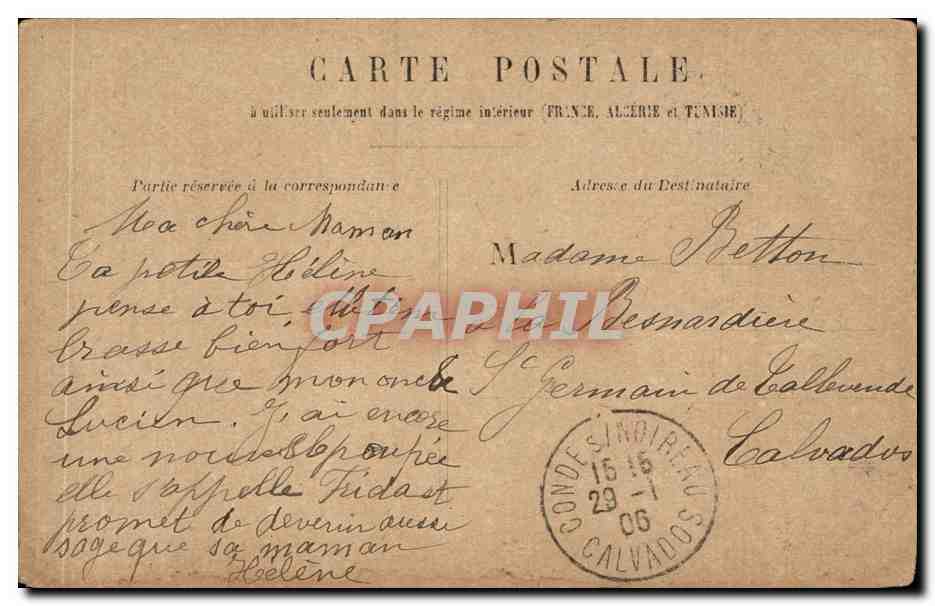 CARTE POSTALE
à utiliser seulement dans le régime intérieur (FRANCE, ALGÉRIE et TUNISIE)
Partie réservée à la correspondance
Ma chère Maman
Ta petite Hélène
pense à toi et t'em
brasse bien fort
ainsi que mon oncle
Lucien. J'ai encore
une nouvelle poupée
elle s'appelle Frida et
promet de devenir aussi
sage que sa maman
Hélène
Adresse du Destinataire
Madame Betton
à la Besnardière
St Germain de Tallevende
Calvados
CONDE S/NOIREAU
15 15
29 - 1
06
CALVADOS
CPAPHIL